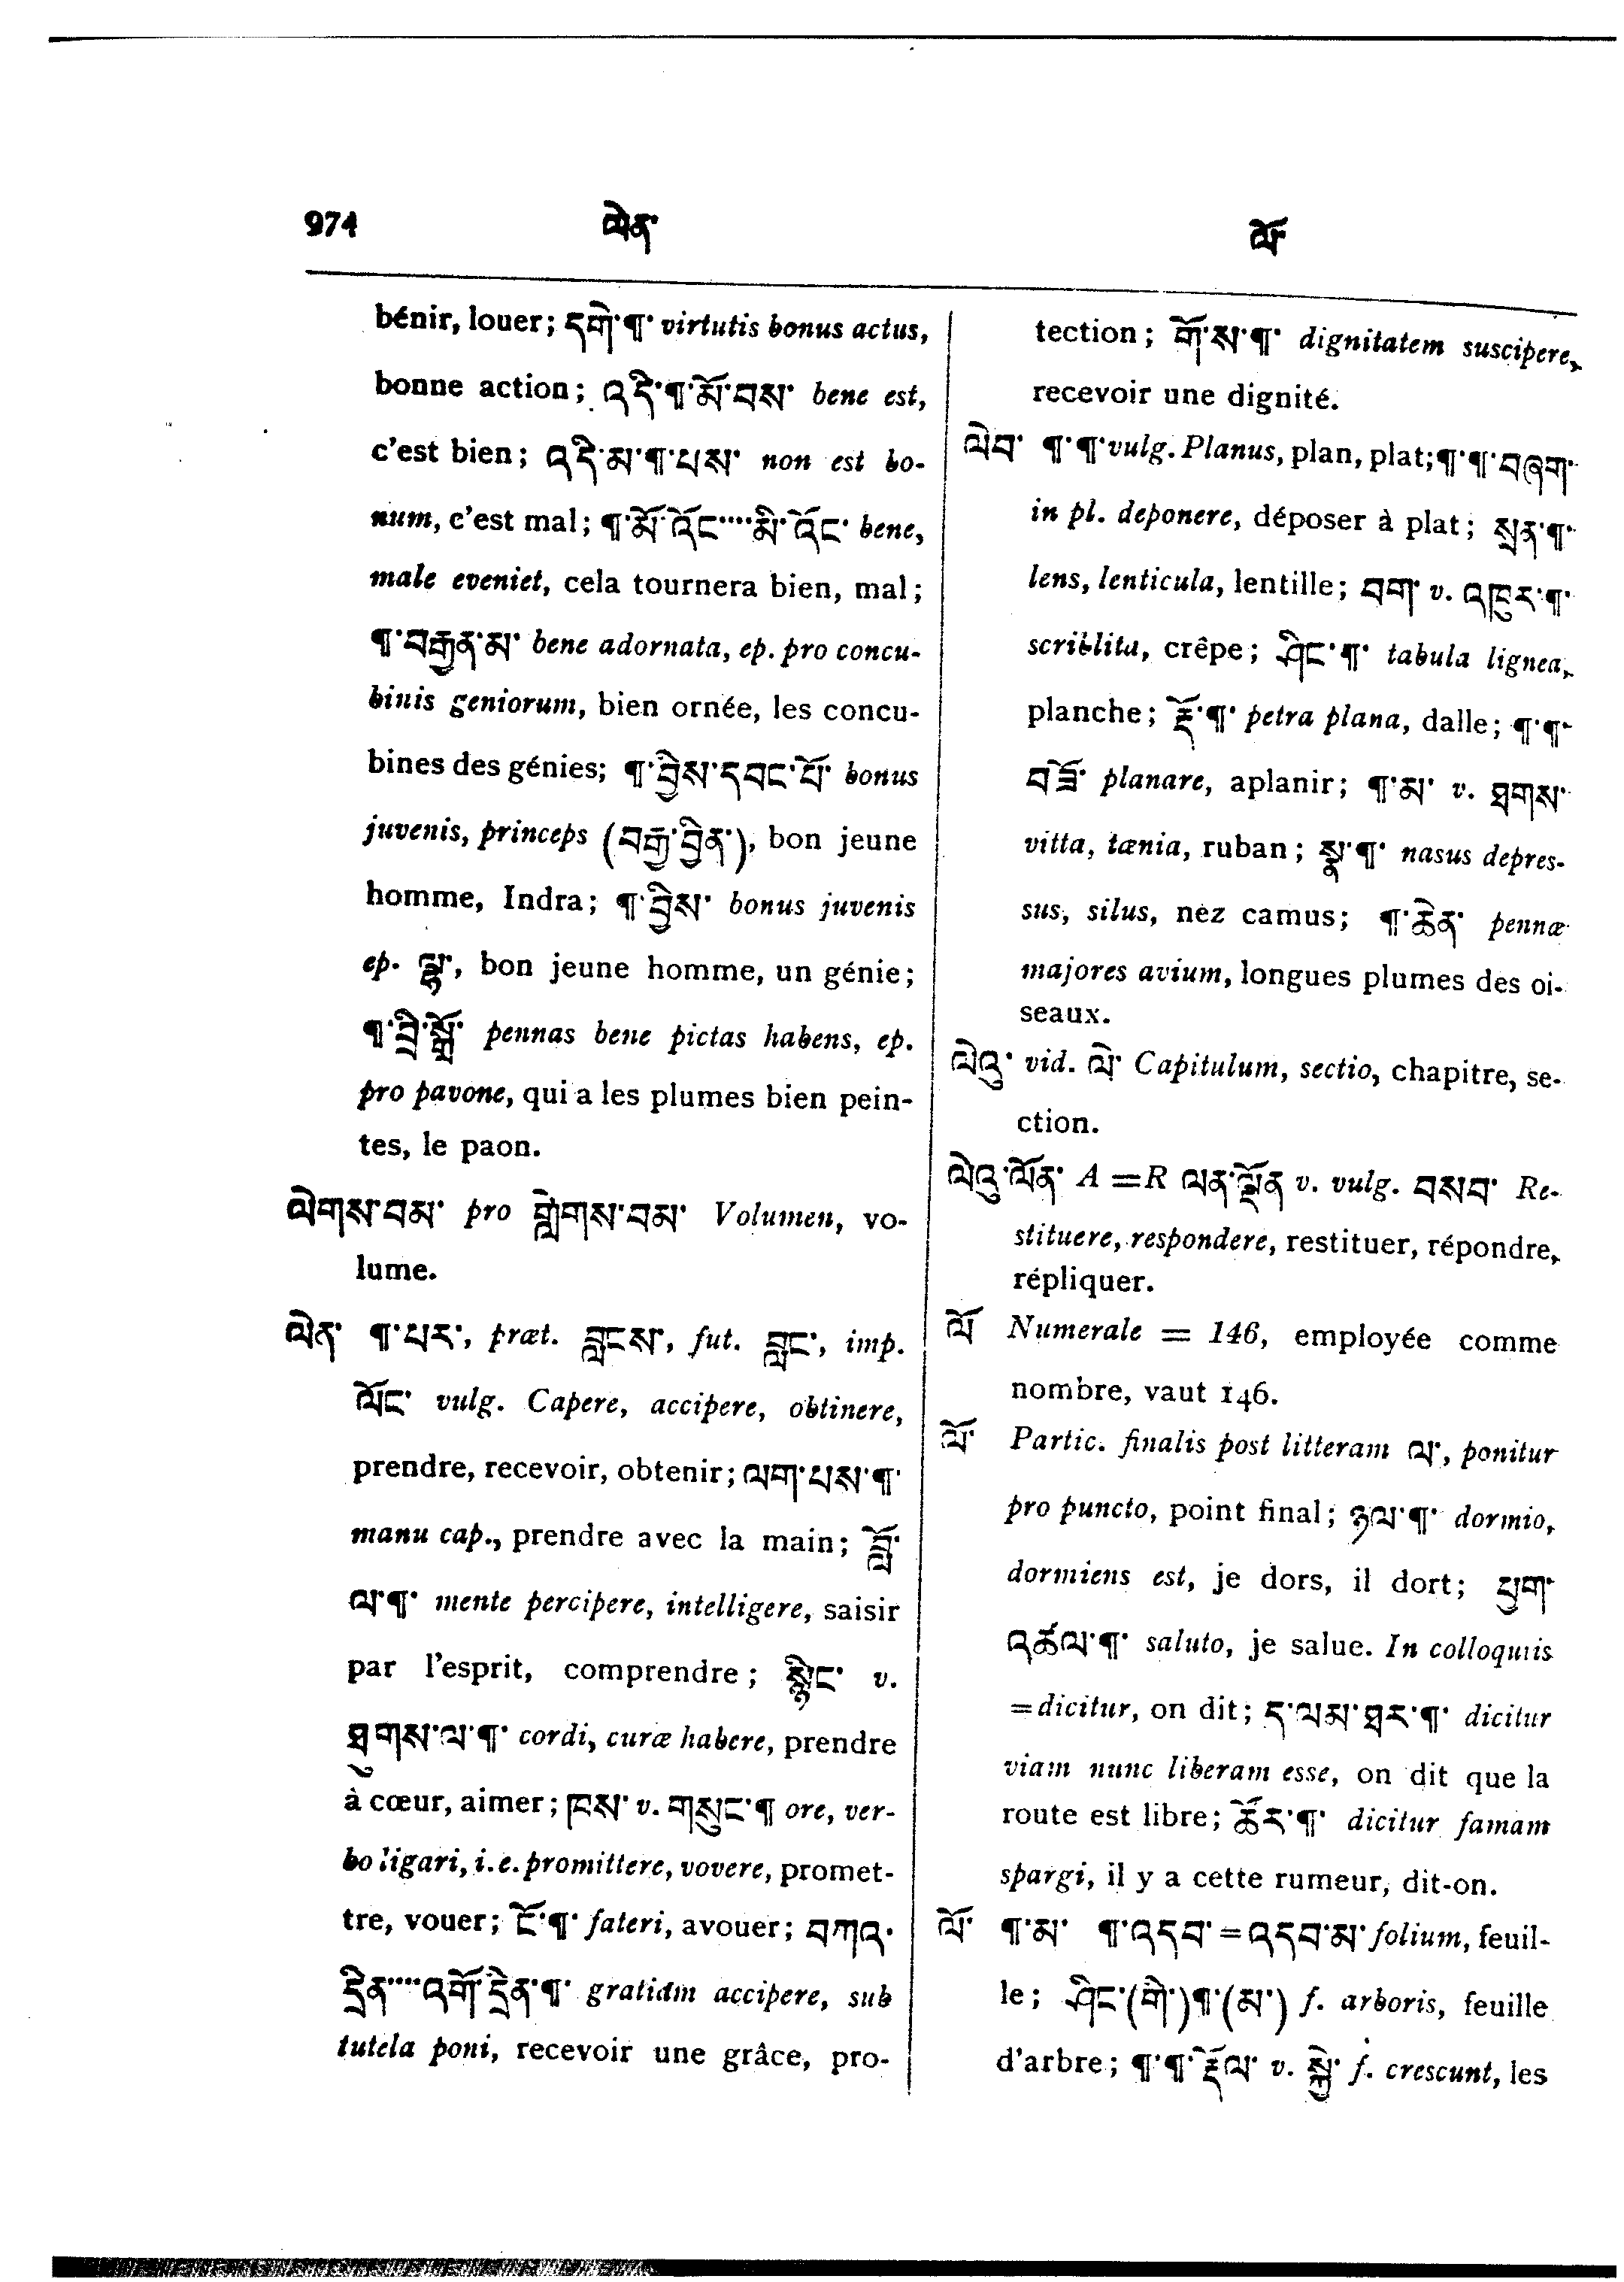 974 ལེན་ ལོ་
bénir, louer; དགེ་¶་ virtutis bonus actus,
bonne action; འདི་¶་མོ་བས་ bene est,
c'est bien; འདི་མ་¶་པས་ non est bo-
num, c'est mal; ¶་མོ་འོང་····མི་འོང་ bene,
male eveniet, cela tournera bien, mal;
¶་བརྒྱན་མ་ bene adornata, ep. pro concu-
binis geniorum, bien ornée, les concu-
bines des génies; ¶་བྱིས་དབང་པོ་ bonus
juvenis, princeps (བརྒྱ་བྱིན་), bon jeune
homme, Indra; ¶་བྱིས་ bonus juvenis
ep. ལྷ་, bon jeune homme, un génie;
¶་བྲི་སྒྲོ་ pennas bene pictas habens, ep.
pro pavone, qui a les plumes bien pein-
tes, le paon.
ལེགས་བམ་ pro གླེགས་བམ་ Volumen, vo-
lume.
ལེན་ ¶་པར་, præt. བླངས་, fut. བླང་, imp.
ལོང་ vulg. Capere, accipere, obtinere,
prendre, recevoir, obtenir; ལག་པས་¶་
manu cap., prendre avec la main; བློ་
ལ་¶་ mente percipere, intelligere, saisir
par l'esprit, comprendre; སྙིང་ v.
ཐུགས་ལ་¶་ cordi, curæ habere, prendre
à cœur, aimer; ཁས་ v. གསུང་¶ ore, ver-
bo ligari, i.e. promittere, vovere, promet-
tre, vouer; ངོ་¶་ fateri, avouer; བཀའ་
དྲིན་····འགོ་དྲིན་¶་ gratiam accipere, sub
tutela poni, recevoir une grâce, pro-
tection; གོ་ས་¶་ dignitatem suscipere,
recevoir une dignité.
ལེབ་ ¶་¶་ vulg. Planus, plan, plat; ¶་¶་བཞག་
in pl. deponere, déposer à plat; སྲན་¶་
lens, lenticula, lentille; བག་ v. འཁུར་¶་
scriblita, crêpe; ཤིང་¶་ tabula lignea,
planche; རྡོ་¶་ petra plana, dalle; ¶་¶་
བཟོ་ planare, aplanir; ¶་མ་ v. ཐགས་
vitta, tænia, ruban; སྣ་¶་ nasus depres-
sus, silus, nez camus; ¶་ཆེན་ pennæ
majores avium, longues plumes des oi-
seaux.
ལེའུ་ vid. ལེ་ Capitulum, sectio, chapitre, se-
ction.
ལེའུ་ལོན་ A = R ལན་ལྡོན v. vulg. བསབ་ Re-
stituere, respondere, restituer, répondre,
répliquer.
ལོ Numerale = 146, employée comme
nombre, vaut 146.
ལོ་ Partic. finalis post litteram ལ་, ponitur
pro puncto, point final; ཉལ་¶་ dormio,
dormiens est, je dors, il dort; ཕྱག་
འཚལ་¶་ saluto, je salue. In colloquiis
= dicitur, on dit; ད་ལམ་ཐར་¶་ dicitur
viam nunc liberam esse, on dit que la
route est libre; ཆོར་¶་ dicitur famam
spargi, il y a cette rumeur, dit-on.
ལོ་ ¶་མ་ ¶་འདབ་ = འདབ་མ་ folium, feuil-
le; ཤིང་(གི་)¶་(མ་) f. arboris, feuille
d'arbre; ¶་¶་རྡོལ་ v. སྐྱེ་ f. crescunt, les